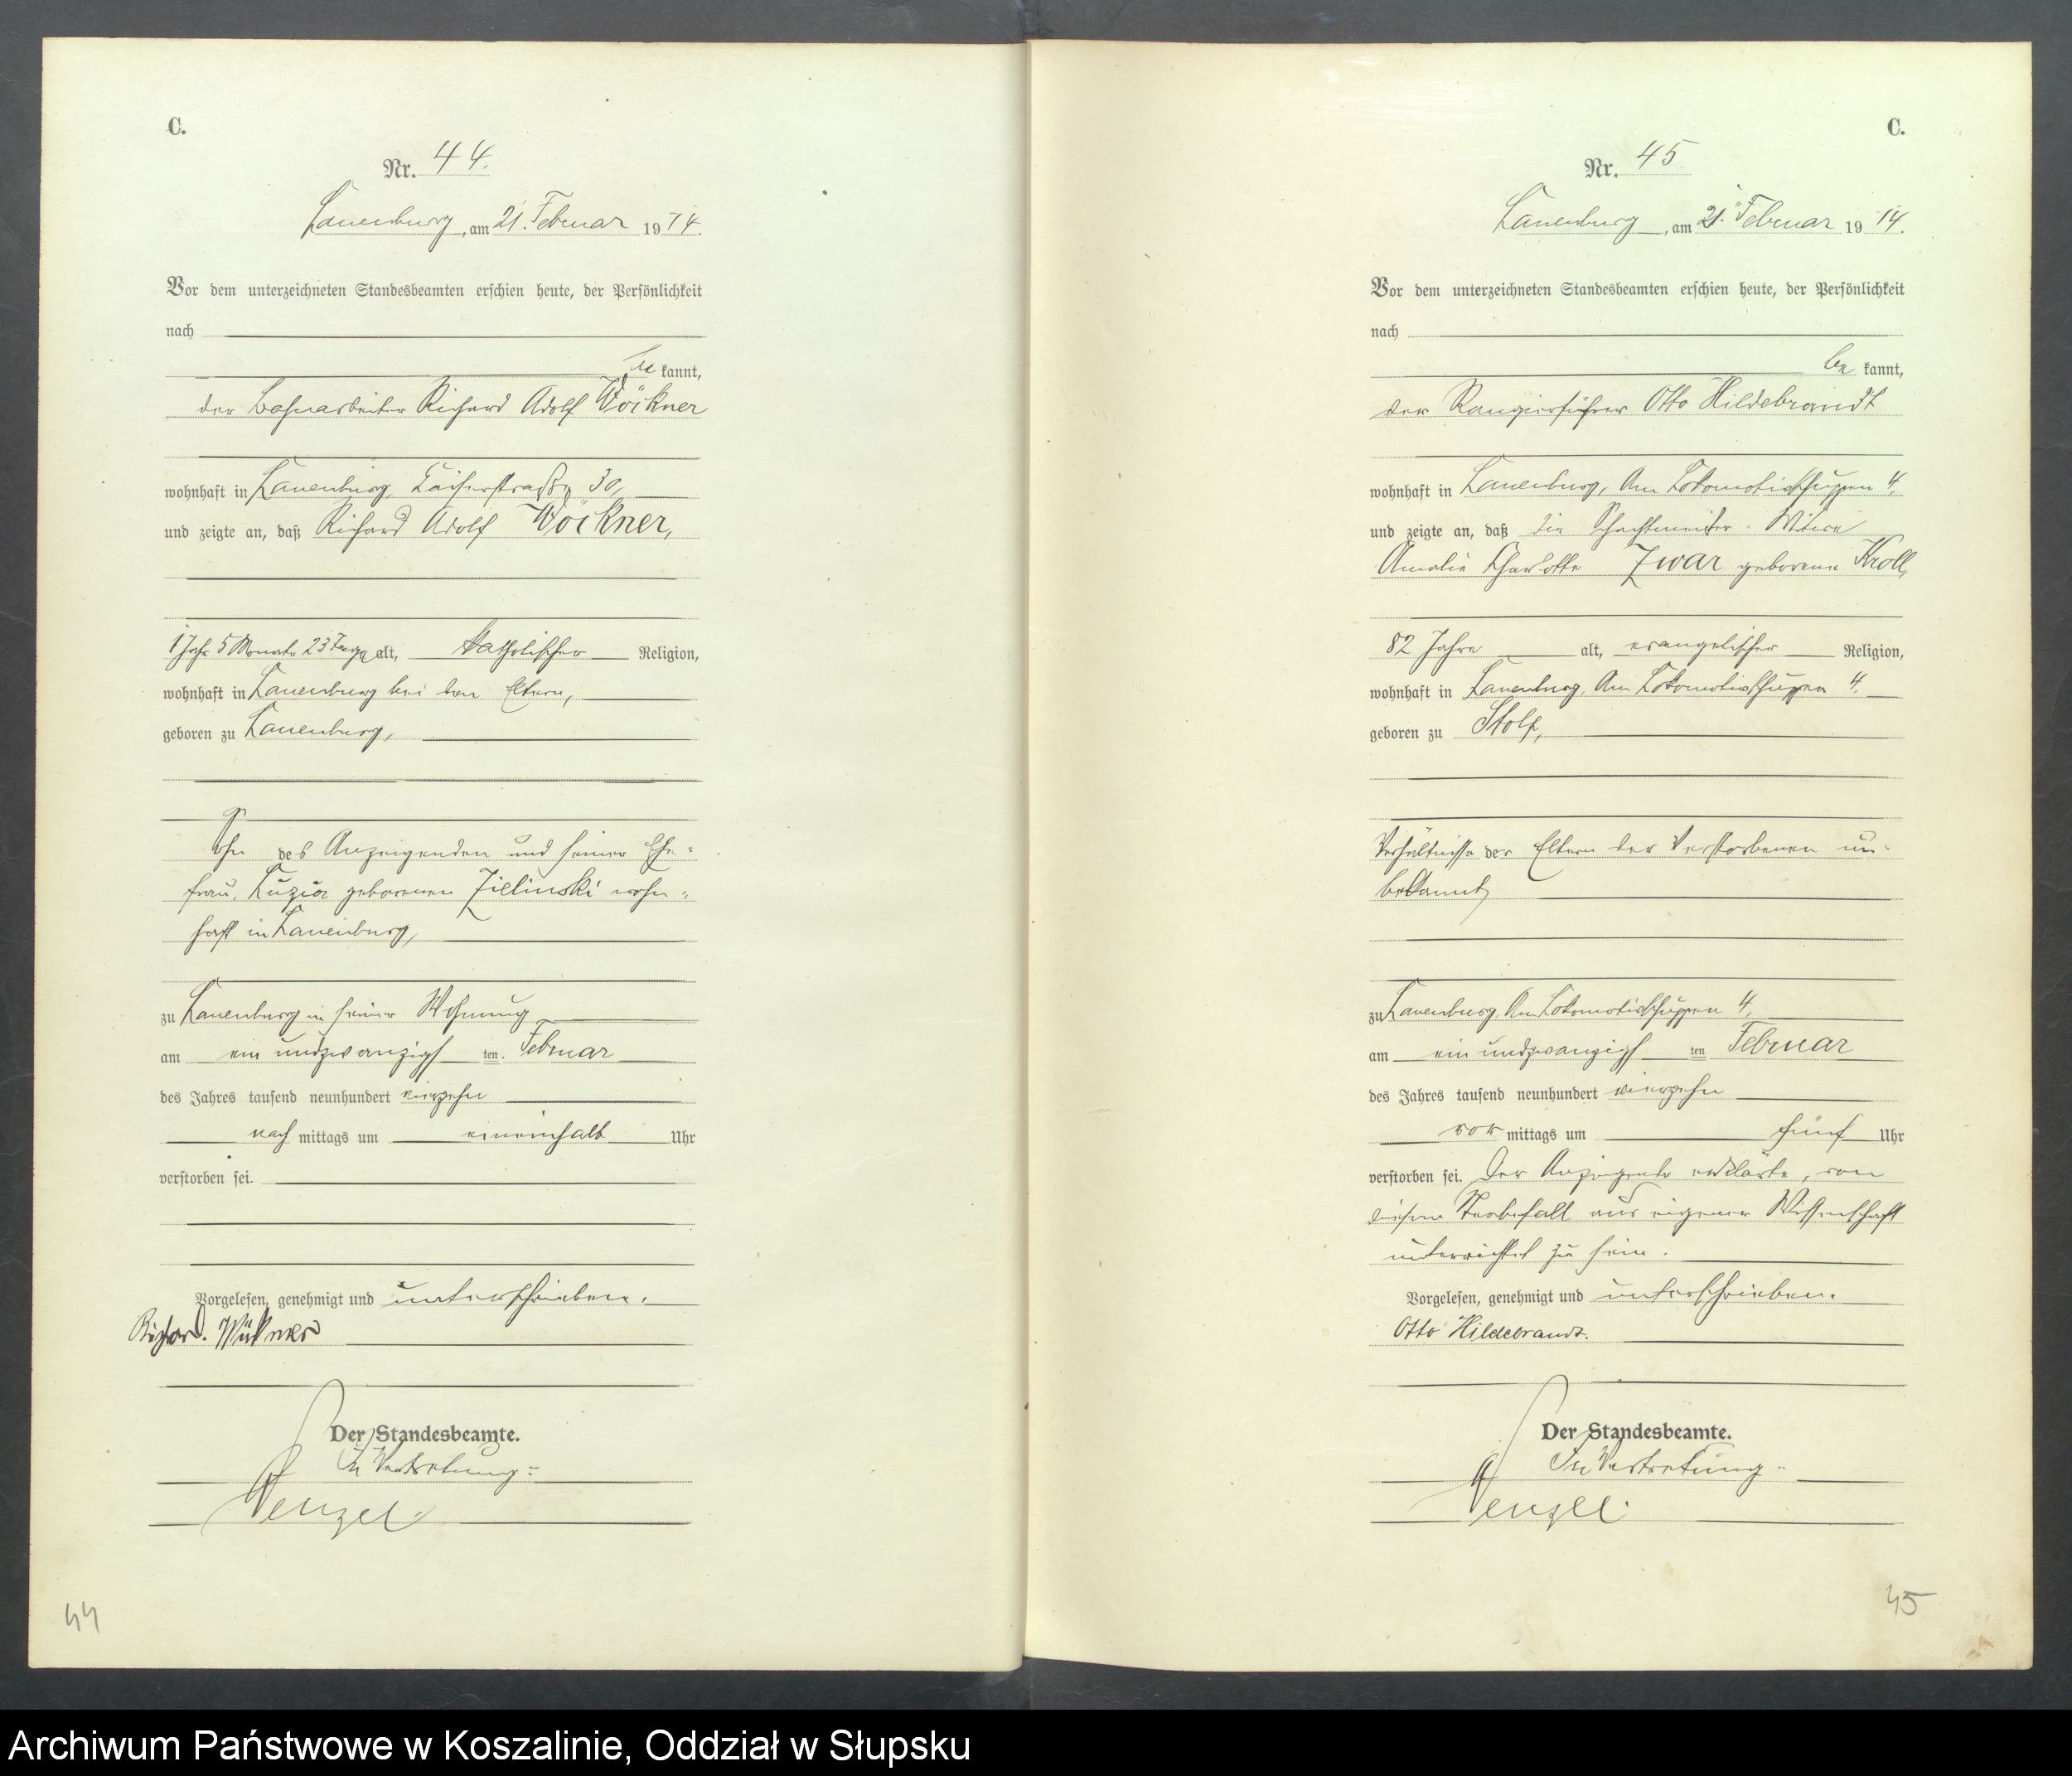 C.
Nr. 44.
Lauenburg, am 21. Februar 1914.
Vor dem unterzeichneten Standesbeamten erschien heute, der Persönlichkeit
nach
be kannt,
der Bahnarbeiter Richard Adolf Wöikner
wohnhaft in Lauenburg, 30,
und zeigte an, daß Richard Adolf Wöikner,
1 Jahr 5 Monate 23 Tage alt, katholischer Religion,
wohnhaft in Lauenburg bei den Eltern,
geboren zu Lauenburg,
Sohn des Anzeigenden und seiner Ehe-
frau, geborenen Zielinski wohn-
haft in Lauenburg,
zu Lauenburg in seiner Wohnung
am ein undzwanzigsten Februar
des Jahres tausend neunhundert vierzehn
nach mittags um eineinhalb Uhr
verstorben sei.
Vorgelesen, genehmigt und unterschrieben.
Richard
Der Standesbeamte.
In Vertretung:
Wenzel.
44
C.
Nr. 45
Lauenburg, am 21. Februar 1914.
Vor dem unterzeichneten Standesbeamten erschien heute, der Persönlichkeit
nach
be kannt,
der Rangierführer Otto Hildebrandt
wohnhaft in Lauenburg, Am Lokomotivschuppen 4,
und zeigte an, daß die Schachtmeister-Witwe
Amalie Charlotte Zwar geborene Kroll,
82 Jahre alt, evangelischer Religion,
wohnhaft in Lauenburg, Am Lokomotivschuppen 4,
geboren zu Stolp,
Verhältnisse der Eltern der Verstorbenen un-
bekannt,
zu Lauenburg, Am Lokomotivschuppen 4,
am ein undzwanzigsten Februar
des Jahres tausend neunhundert vierzehn
vor mittags um fünf Uhr
verstorben sei. Der Anzeigende erklärte, von
diesem Sterbefall aus eigener Wissenschaft
unterrichtet zu sein.
Vorgelesen, genehmigt und unterschrieben.
Otto Hildebrandt.
Der Standesbeamte.
In Vertretung:
Wenzel.
45
Archiwum Państwowe w Koszalinie, Oddział w Słupsku